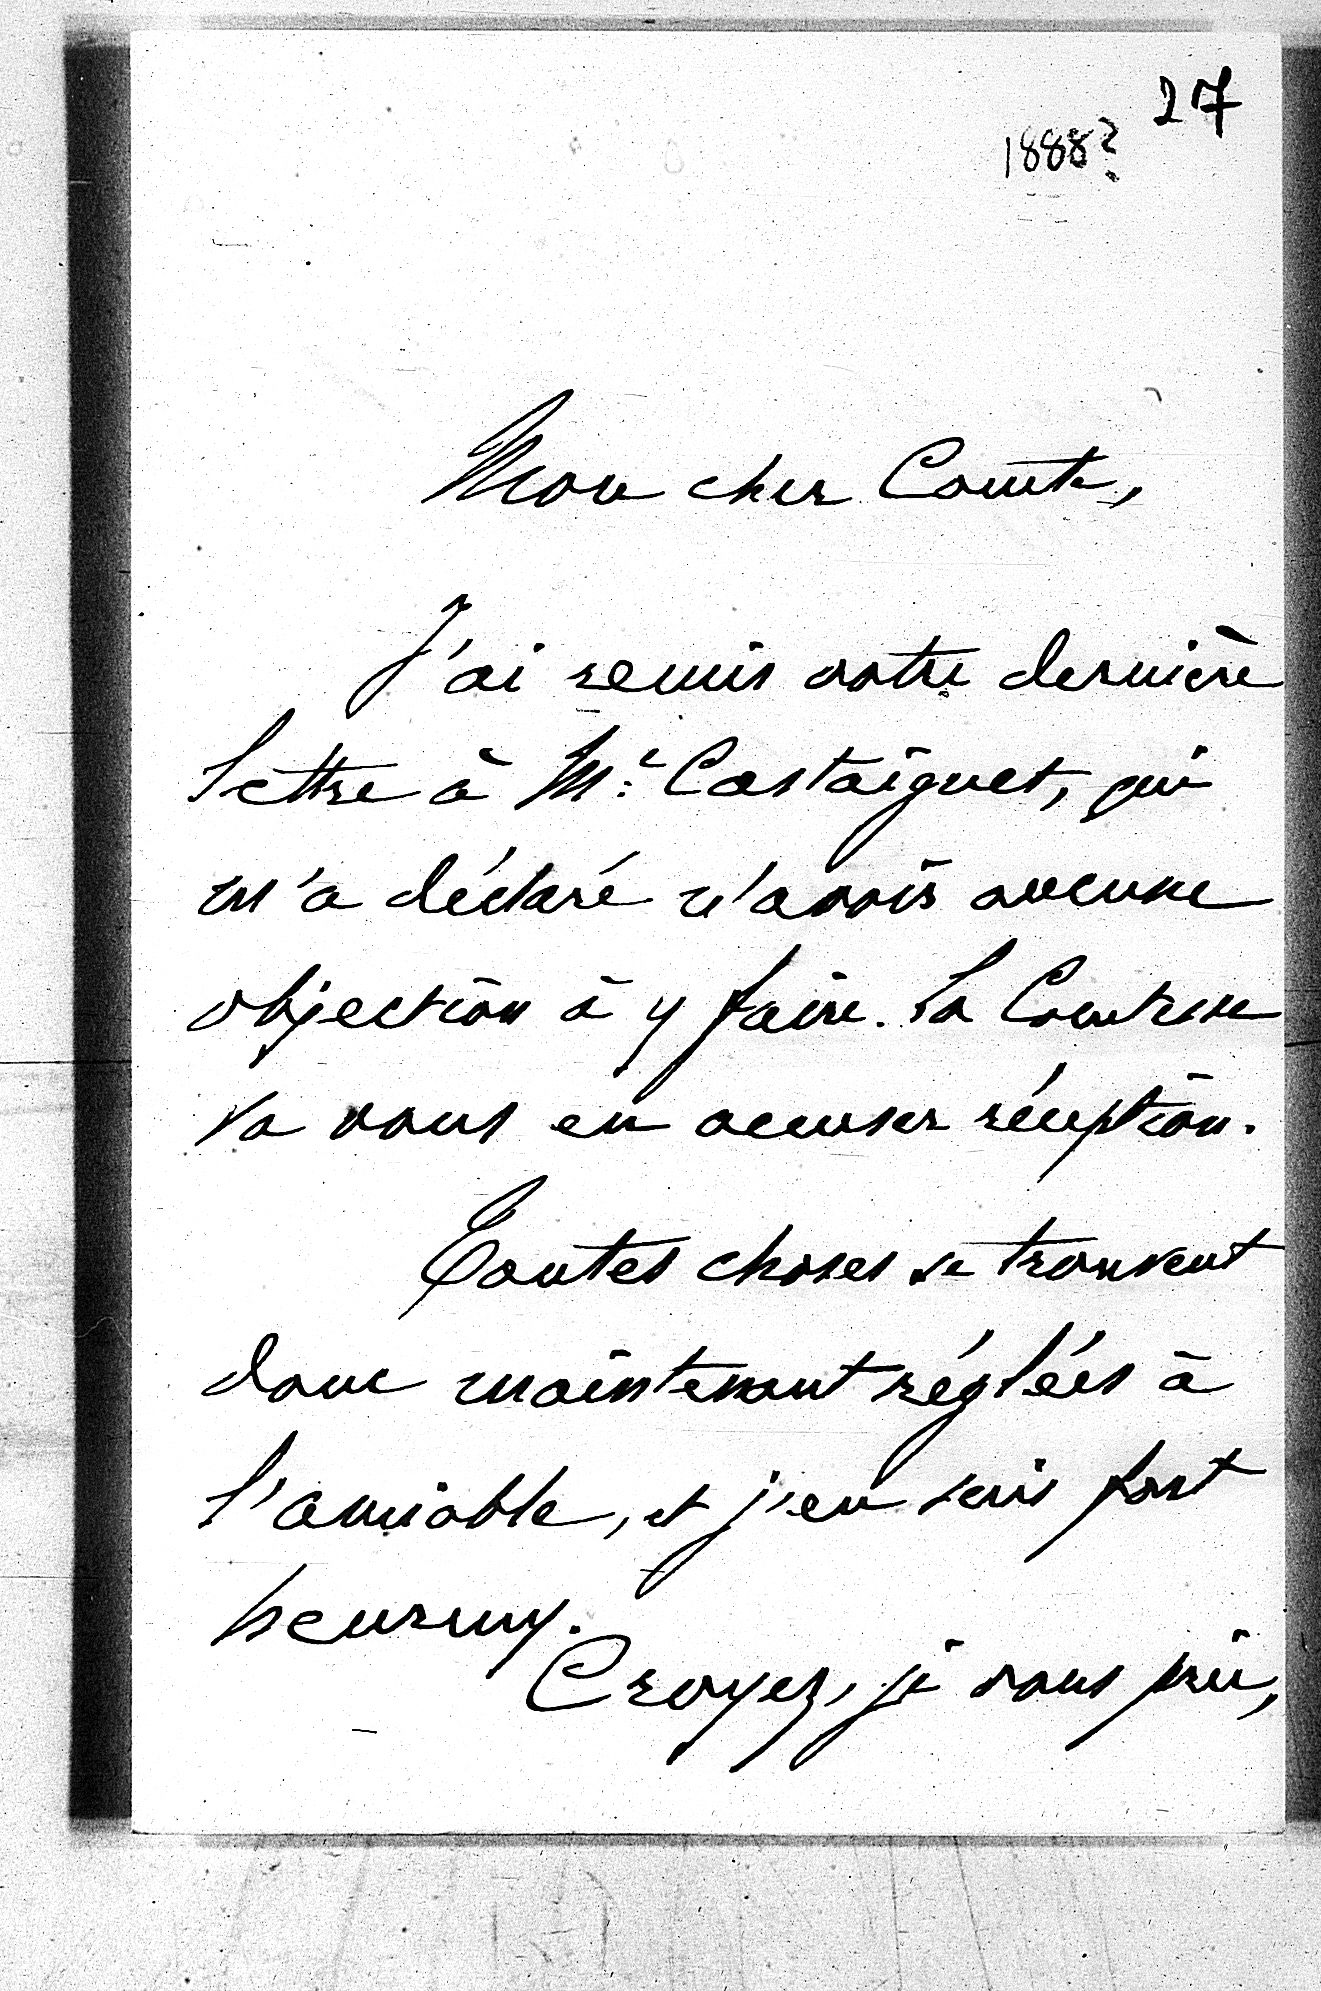 27
1888?
Mon cher Comte,
J'ai remis votre dernière
lettre à Mr: Castaignet, qui
m'a déclaré n'avoir aucune
objection à y faire. La Comtesse
va vous en accuser réception.
Toutes choses se trouvent
donc maintenant réglées à
l'amiable, et j'en suis fort
heureux.
Croyez, je vous prie,